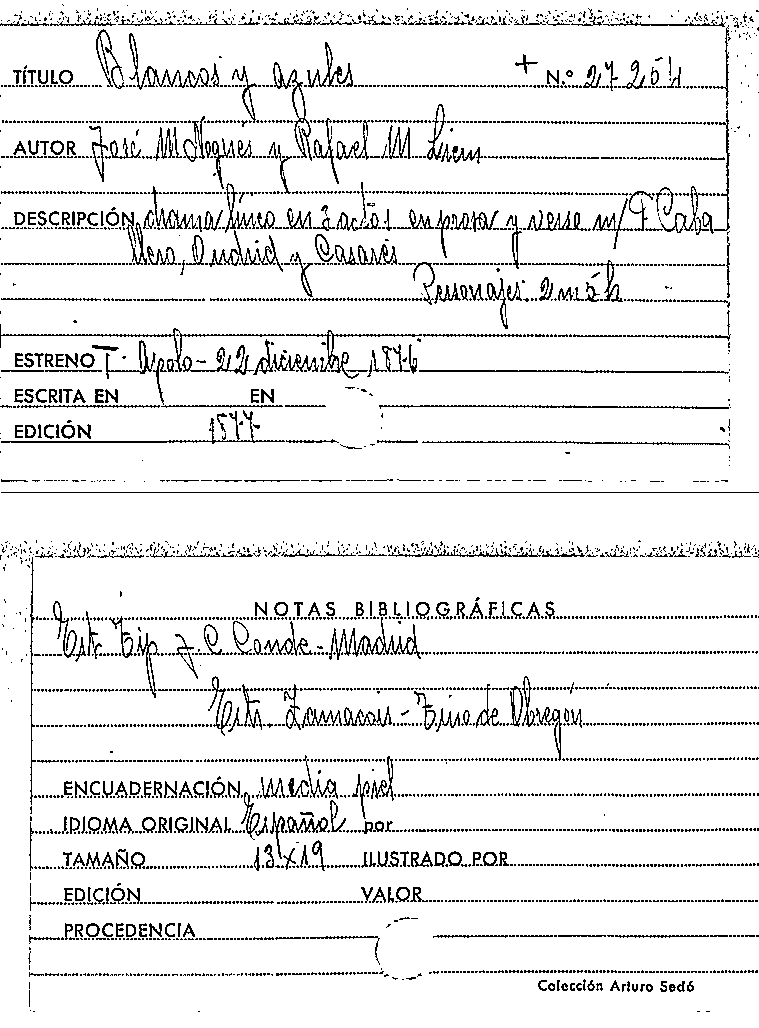 TÍTULO Blancos y azules + N.º 27254
AUTOR José M Nogués y Rafael M Liern
DESCRIPCIÓN drama lírico en 3 actos en prosa y verso m/ F Caba
llero, Oudrid y Casares
Personajes: 2m 5h
ESTRENO T. Apolo - 22 diciembre 1876
ESCRITA EN EN
EDICIÓN 1877
NOTAS BIBLIOGRÁFICAS
Est. Tip J. C Conde - Madrid
Estr. Zamacois - Tirso de Obregón
ENCUADERNACIÓN media piel
IDIOMA ORIGINAL Español por
TAMAÑO 13x19 ILUSTRADO POR
EDICIÓN VALOR
PROCEDENCIA
Colección Arturo Sedó